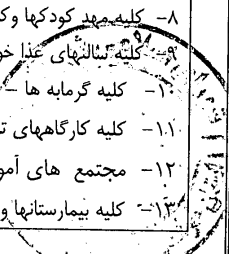 ۸- کلیه مهد کودکها وک
۹- کلیه سالنهای غذا خو
۱۰- کلیه گرمابه ها –
۱۱- کلیه کارگاههای ت
۱۲- مجتمع های آمو
۱۳- کلیه بیمارستانها و